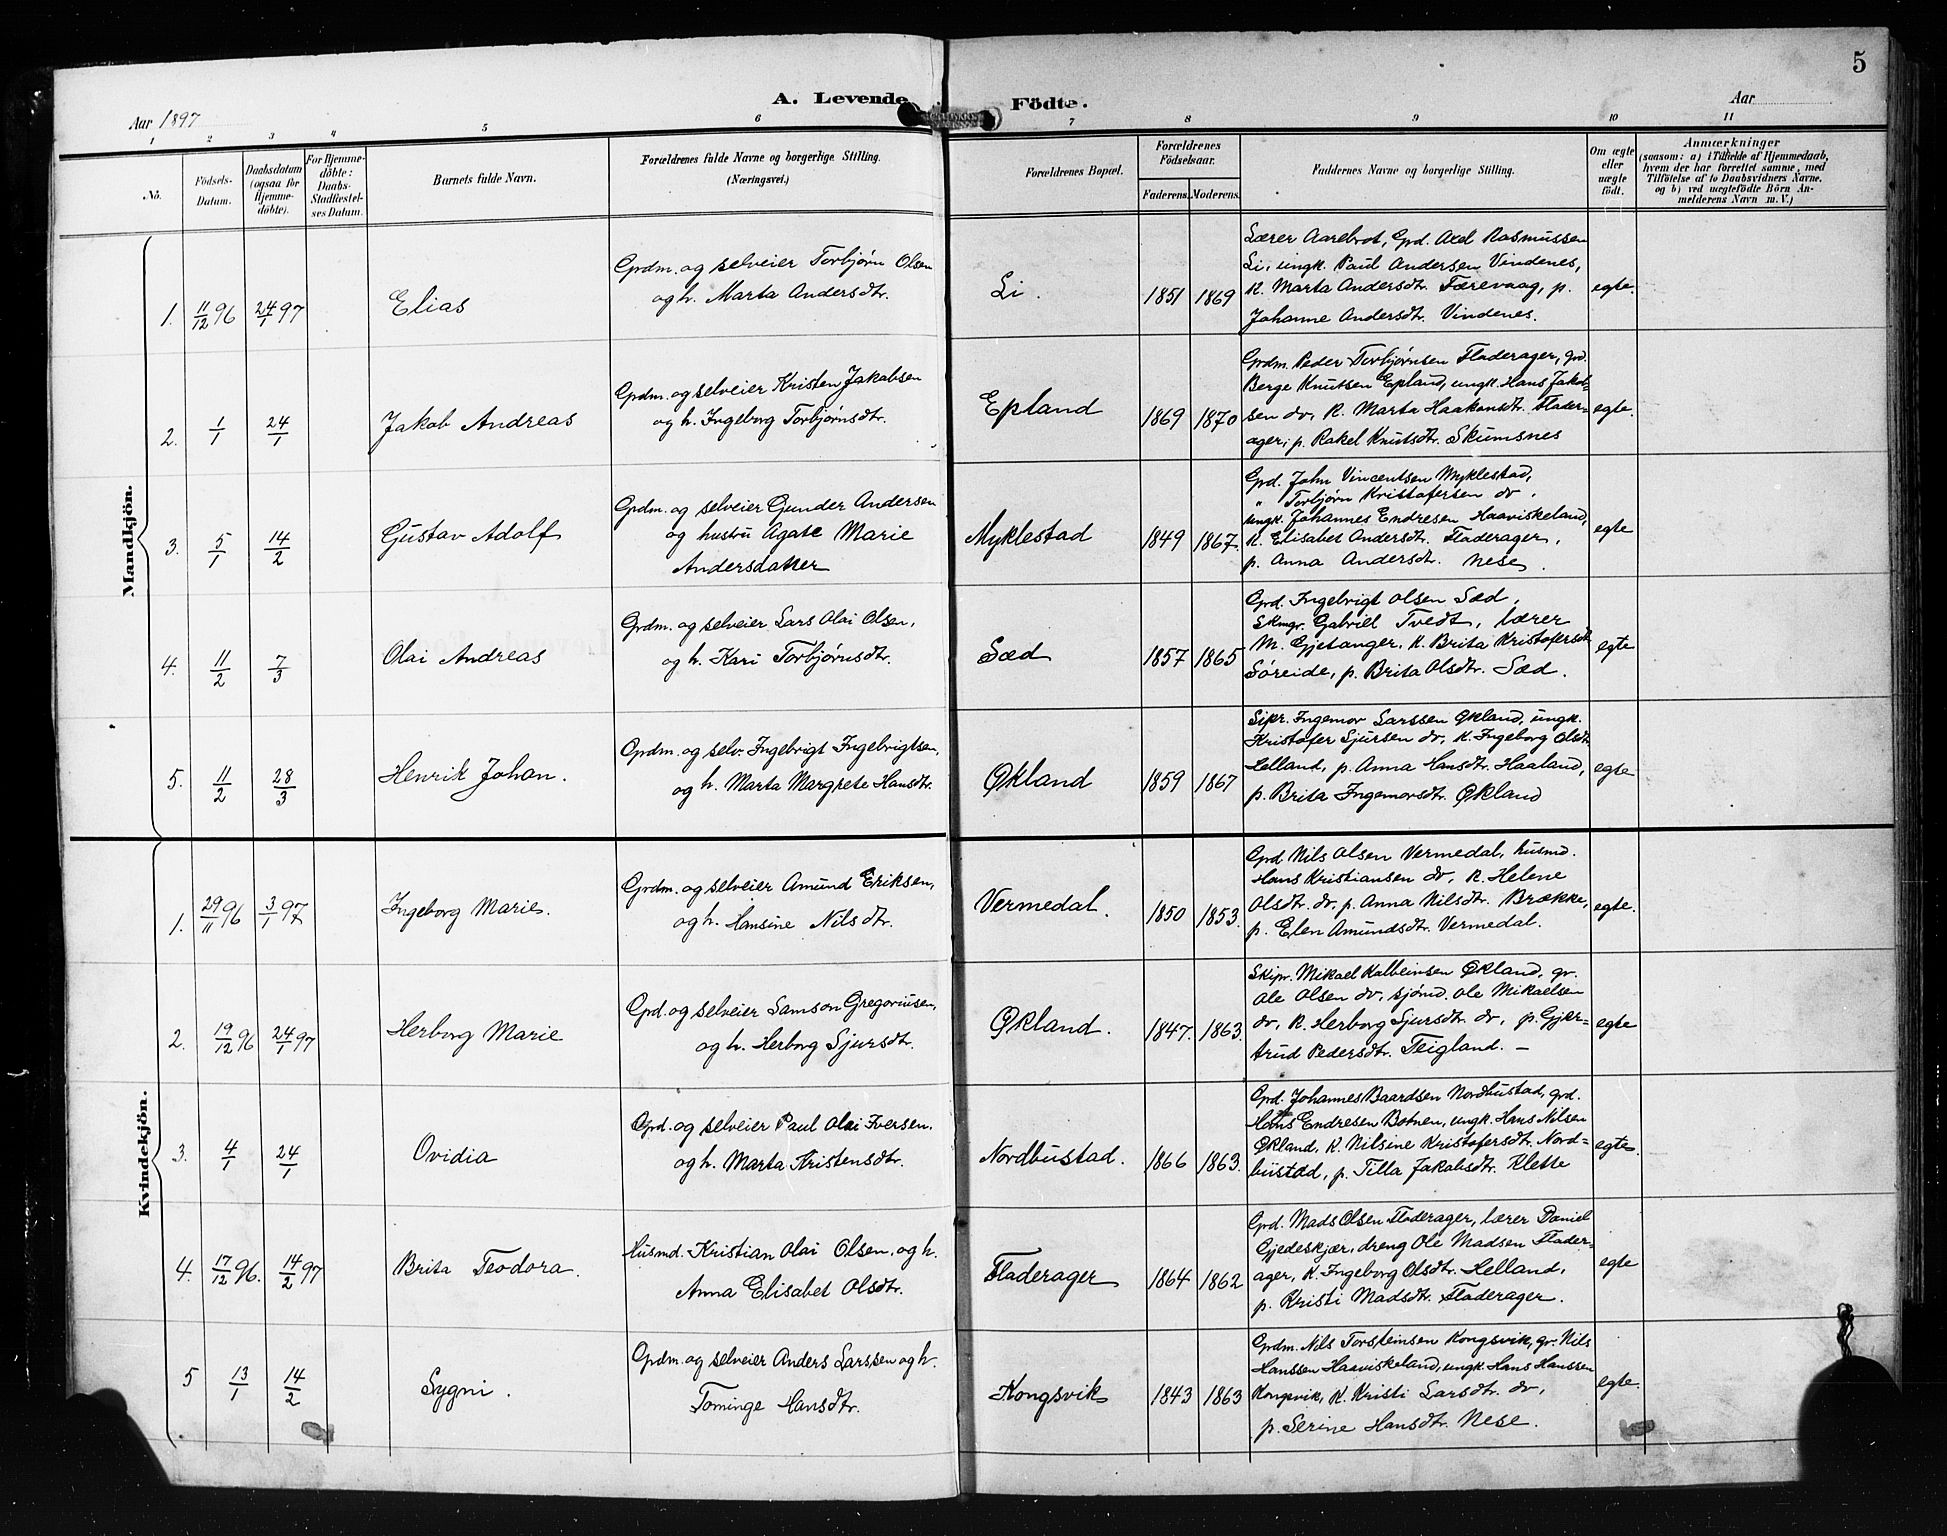 5
A. Levende Födte.
Aar 1897
Aar
1 2 3 4 5 6 7 8 9 10 11
No.
Födsels-Datum.
Daabsdatum (ogsaa for Hjemmedöbte).
For Hjemmedöbte: Daabs-Stadfæstelses Datum.
Barnets fulde Navn.
Forældrenes fulde Navne og borgerlige Stilling. (Næringsvei.)
Forældrenes Bopæl.
Forældrenes Födselsaar.
Faderens. Moderens.
Faddernes Navne og borgerlige Stilling.
Om ægte eller uægte födt.
Anmærkninger
(saasom: a) i Tilfælde af Hjemmedaab,
hvem der har forrettet samme, med
Tilföielse af to Daabsvidners Navne,
og b) ved uægtefödte Börn An-
melderens Navn m. V.)
Mandkjön.
1. 11/12 96 24/1 97 Elias
Grdm. og selveier Torbjørn Olsen
og h. Marta Andersdtr.
Li. 1851 1869
Lærer Aarebrot, Grd. Axel Rasmussen
Li, ungk. Paul Andersen Vindenes,
k. Marta Andersdtr. Færevaag, p.
Johanne Andersdtr. Vindenes.
egte.
2. 1/1 24/1 Jakob Andreas
Grdm. og selveier Kristen Jakobsen
og h. Ingeborg Torbjørnsdtr.
Epland 1869 1870
Grdm. Peder Torbjørnsen Fladerager, grd.
Berge Knutsen Epland, ungk. Hans Jakob-
sen do, k. Marta Haakonsdtr. Flader-
ager, p. Rakel Knutsdtr. Skumsnes
egte.
3. 5/1 14/2 Gustav Adolf
Grdm. og selveier Gunder Andersen
og hustru Agate Marie
Andersdatter
Myklestad 1849 1867.
Grd. John Vincentsen Myklestad,
" Torbjørn Kristofersen do,
ungk. Johannes Endresen Haaviskeland,
k. Elisabet Andersdtr. Fladerager,
p. Anna Andersdtr. Nese.
egte
4. 11/2 7/3 Olai Andreas
Grdm. og selveier Lars Olai Olsen,
og h. Kari Torbjørnsdtr.
Sæd 1857 1865
Grd. Ingebrigt Olsen Sæd,
Skmgr. Gabriel Tvedt, lærer
M. Gjetanger, k. Brita Kristofersdtr
Søreide, p. Brita Olsdtr. Sæd.
egte
5. 11/2 28/3 Henrik Johan.
Grdm. og selv. Ingebrigt Ingebrigtsen,
og h. Marta Margrete Hansdtr.
Økland 1859 1867
Sipr. Ingemor Larssen Økland, ungk.
Kristofer Sjursen do, k. Ingeborg Olsdtr
Helland, p. Anna Hansdtr. Haaland,
p. Brita Ingemorsdtr. Økland
egte
Kvindekjön.
1. 29/11 96 3/1 97 Ingeborg Marie.
Grdm. og selveier Amund Eriksen,
og h. Hansine Nilsdtr.
Vermedal. 1850 1853.
Grd Nils Olsen Vermedal, husmd.
Hans Kristiansen do, k. Helene
Olsdtr. do, p. Anna Nilsdtr. Brække,
p. Elen Amundsdtr. Vermedal.
egte.
2. 19/12 96 24/1 97 Herborg Marie
Grd. og selveier Samson Gregoriusen,
og h. Herborg Sjursdtr.
Økland. 1847. 1863.
Skipr. Mikael Kolbeinsen Økland, gr.
Ole Olsen do, sjømd. Ole Mikaelsen
do, k. Herborg Sjursdtr. do, p. Gjer-
trud Pedersdtr. Teigland. —
egte
3. 4/1 24/1 Ovidia
Grd. og selveier Paul Olai Iversen.
og h. Marta Kristensdtr.
Nordbustad. 1866 1863.
Grd. Johannes Baardsen Nordbustad, grd.
Hans Endresen Botnen, ungk. Hans Nilsen
Økland, k. Nilsine Kristofersdtr. Nord-
bustad, p. Tilla Jakobsdtr. Klette
egte.
4. 17/12 96. 14/2 97 Brita Teodora.
Husmd. Kristian Olai Olsen, og h.
Anna Elisabet Olsdtr.
Fladerager 1864 1862
Grd. Mads Olsen Fladerager, lærer Daniel
Gjedeskjær, dreng Ole Madsen Flader-
ager, k. Ingeborg Olsdtr. Helland,
p. Kristi Madsdtr. Fladerager.
egte
5 13/1 14/2 Sygni.
Grdm. og selveier Anders Larssen og h.
Tominge Hansdtr.
Kongsvik 1843 1863
Grdm. Nils Torsteinsen Kongsvik, gr. Nils
Hanssen Haaviskeland, ungk. Hans Hanssen
Kongsvik, k. Kristi Larsdtr. do,
p. Serine Hansdtr. Nese.
egte.